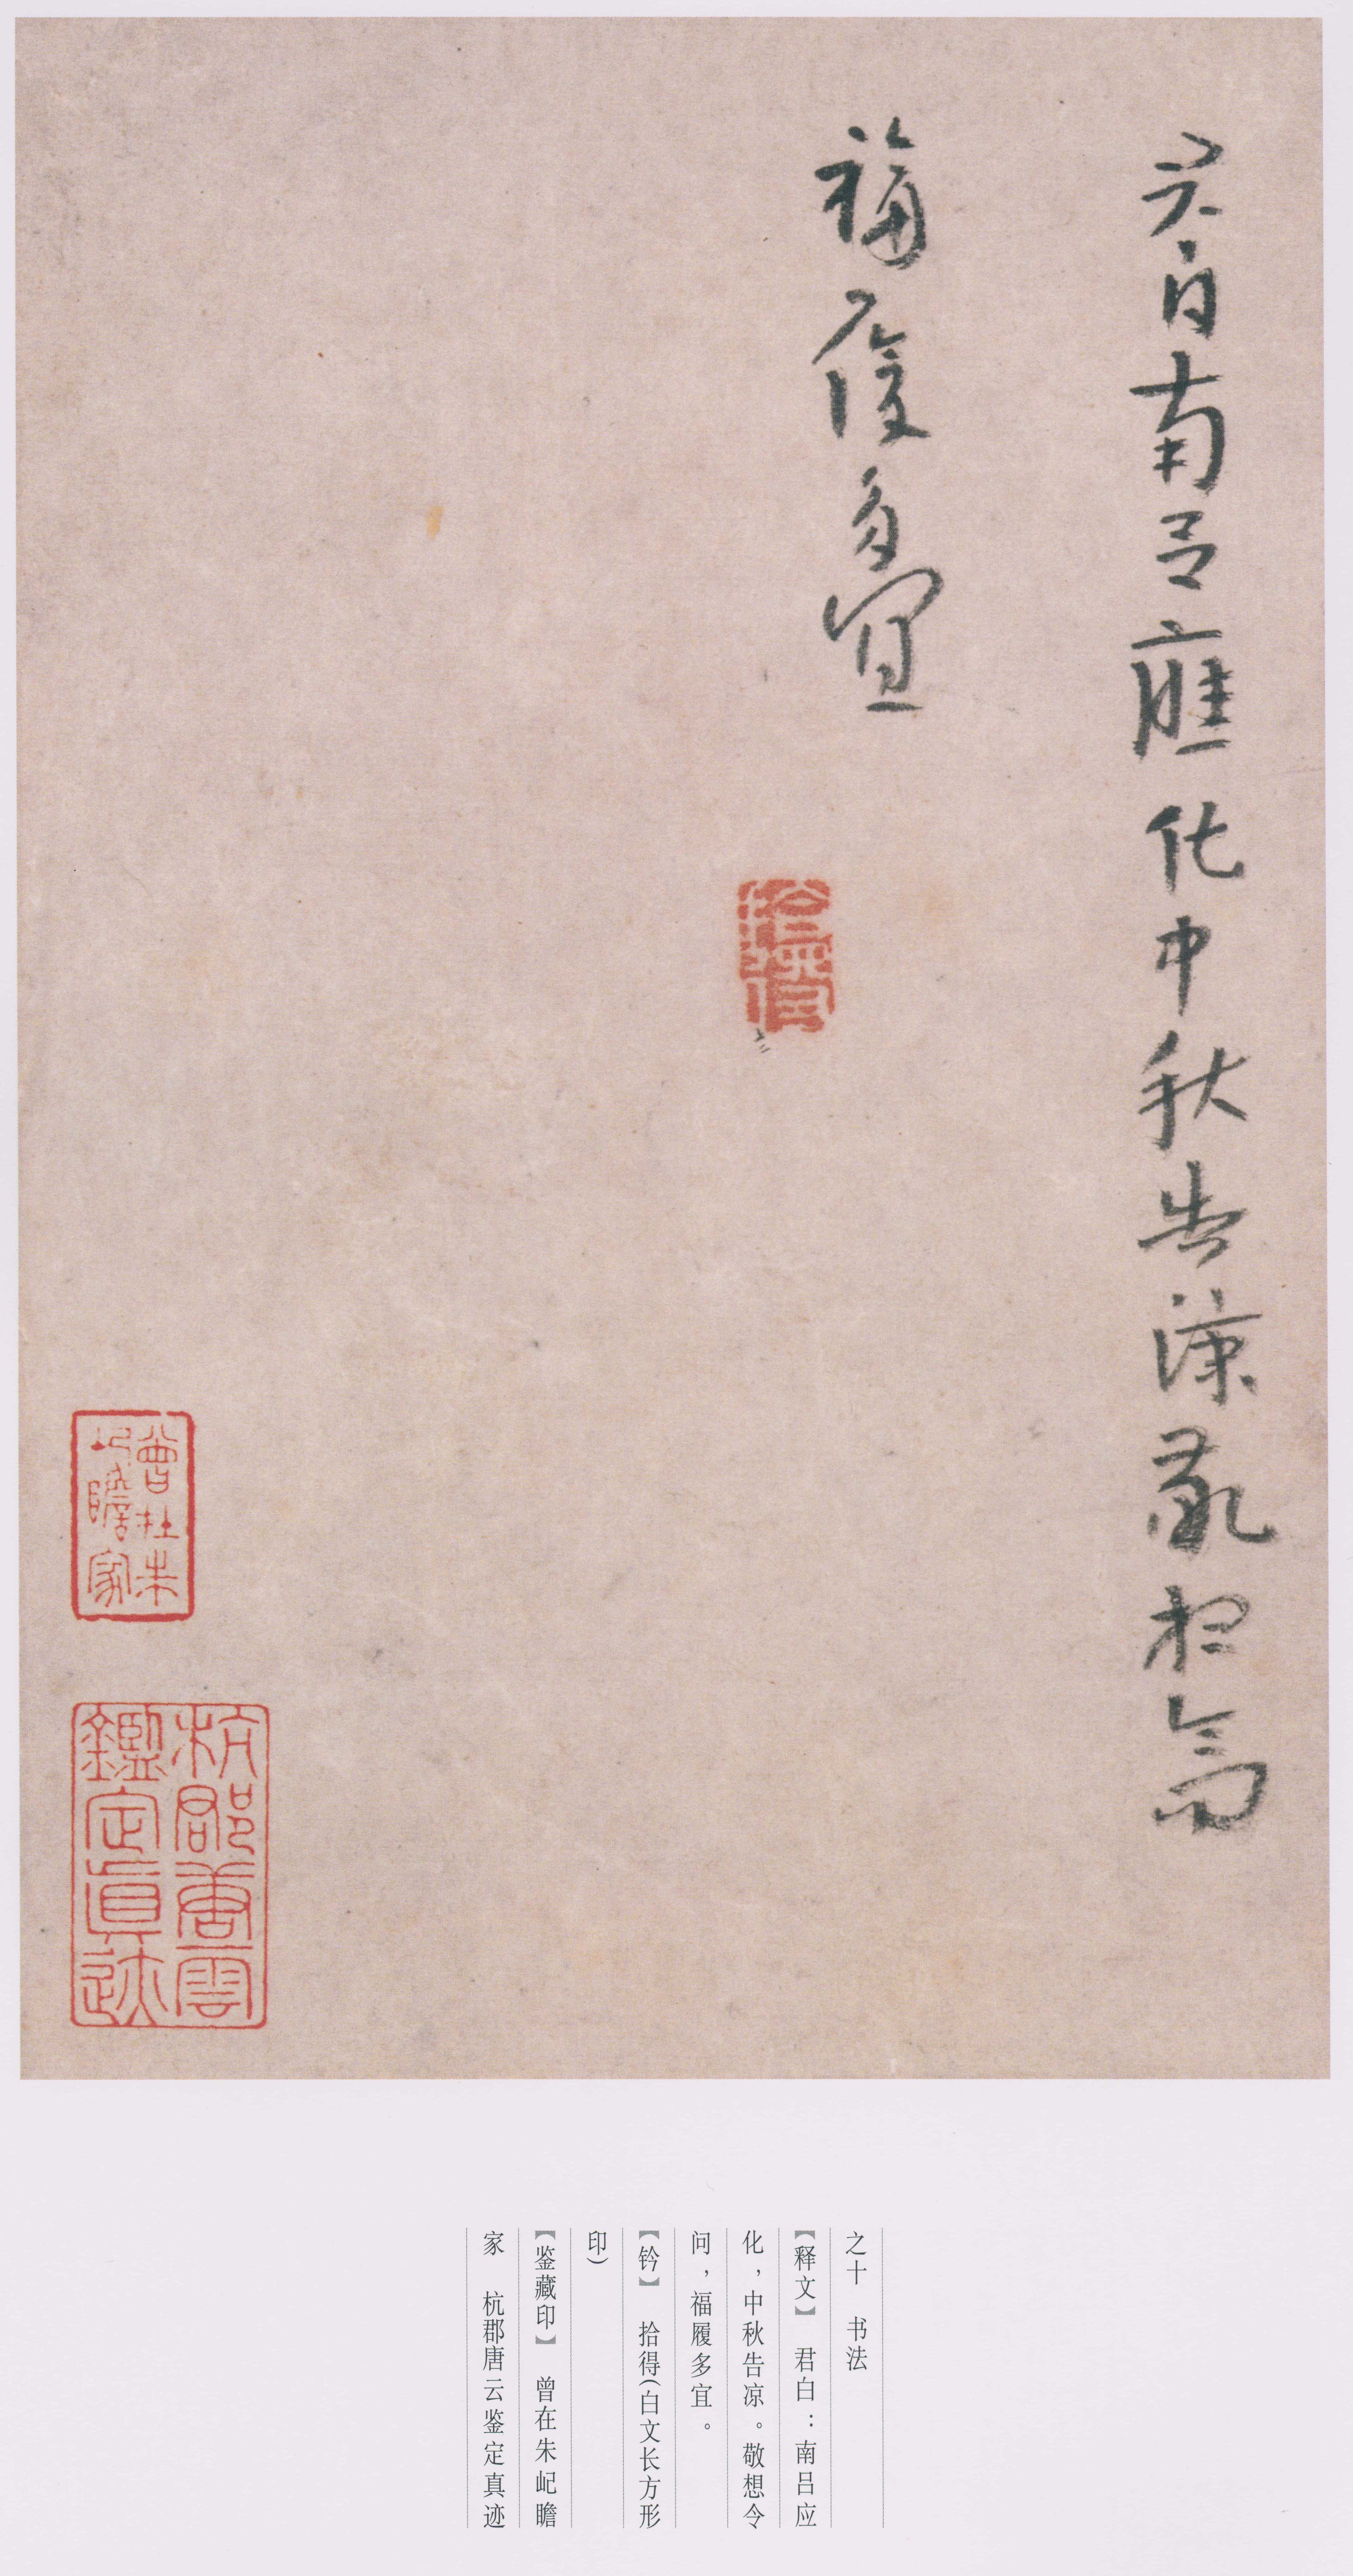 君白南呂應化中秋告涼敬想令問
福履多宜
曾在朱
屺瞻家
杭郡唐雲
鑑定真迹
之十　书法
【释文】　君白：南吕应
化，中秋告凉。敬想令
问，福履多宜。
【钤】　拾得（白文长方形
印）
【鉴藏印】　曾在朱屺瞻
家　杭郡唐云鉴定真迹